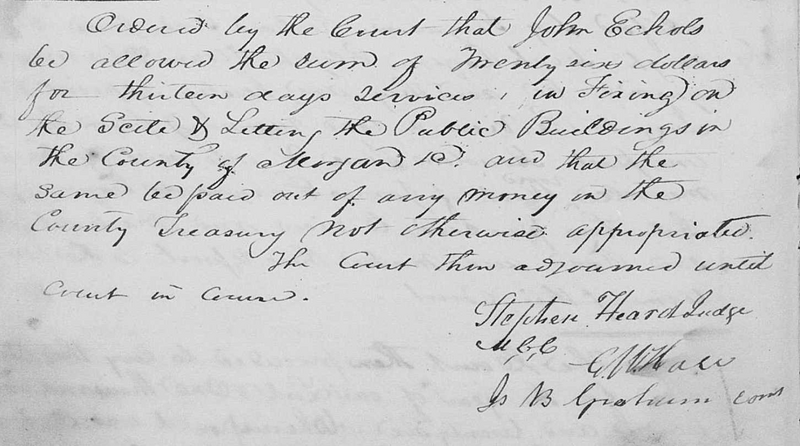 Ordered by the Court that John Echols
be allowed the sum of Twenty six dollars
for thirteen days services, in Fixing on
the Scite & Letting the Public Buildings in
the County of Morgan &C. and that the
same be paid out of any money in the
County Treasury not otherwise appropriated.
The Court then adjourned until
Court in Course.
Stephen Heard Judge
M.C.C
Js B Graham Coms